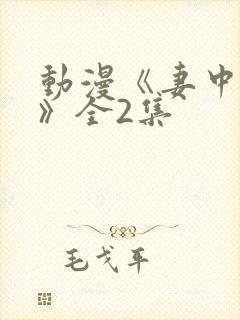 動漫《妻中
》全2集
毛戈平